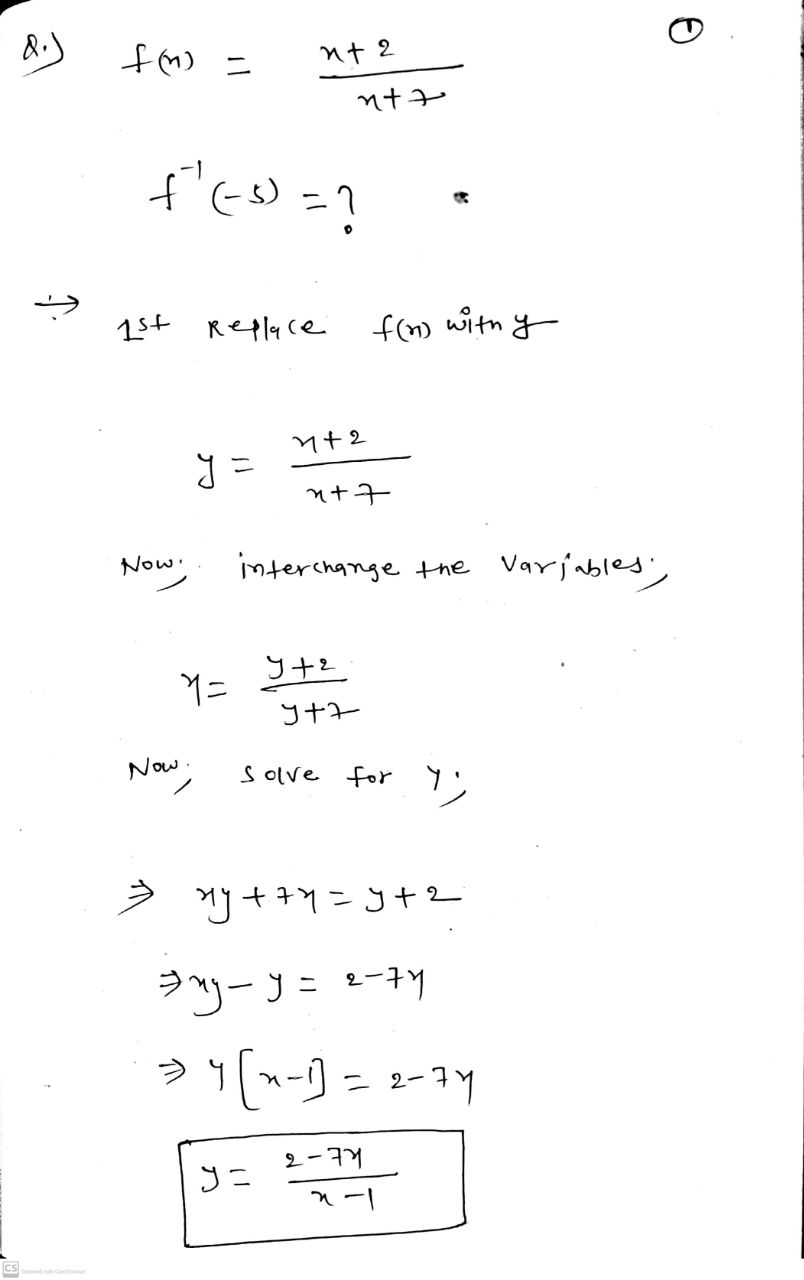 ①
Q.) f(x) = x+2 / x+7
f⁻¹(-5) = ?
÷> 1st Replace f(x) with y
y = x+2 / x+7
Now; interchange the variables;
x = y+2 / y+7
Now; solve for y;
⇒ xy + 7x = y + 2
⇒ xy - y = 2 - 7x
⇒ y[x-1] = 2 - 7x
y = 2-7x / x-1
CS Scanned with CamScanner